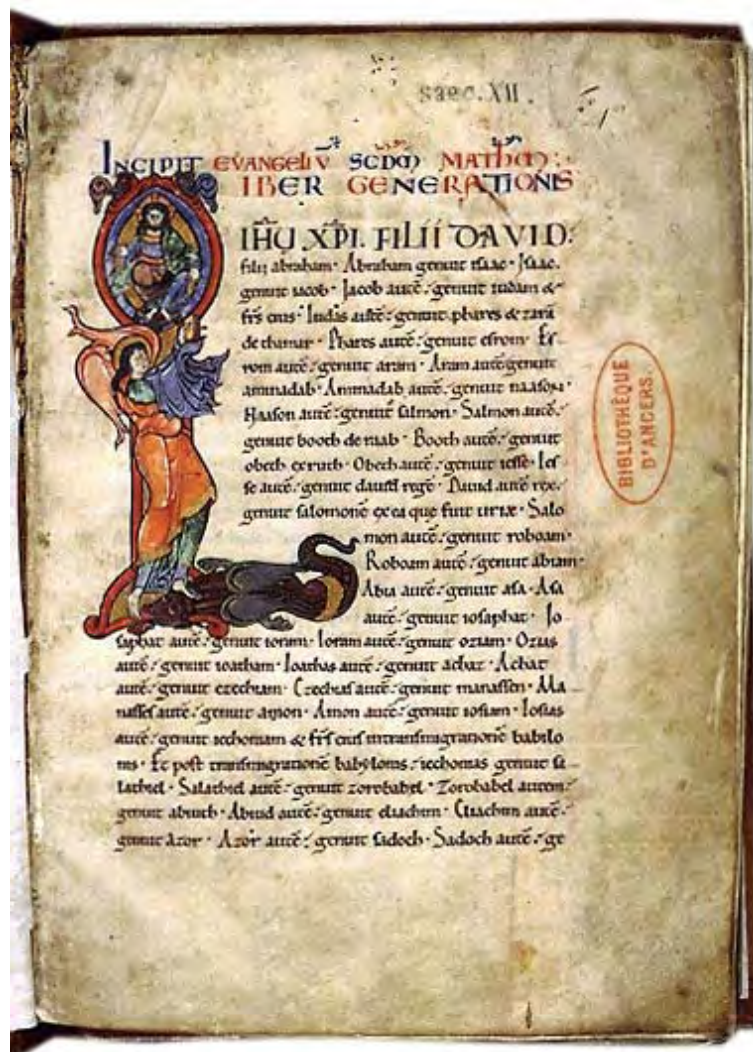 saec. XII.
INCIPIT EVANGELIV̄ SCD̄M MATHM̄:
LIBER GENERATIONIS
IH̄U XP̄I. FILII DAVID.
filii abraham · Abraham genuit isaac · Isaac
genuit iacob · Iacob autē genuit iudam &
fr̄s eius · Iudas autē genuit phares & zarā
de thamar · Phares autē genuit esrom · Es
rom autē genuit aram · Aram autē genuit
aminadab · Aminadab autē genuit naason ·
Naason autē genuit salmon · Salmon autē
genuit booth de raab · Booth autē genuit
obeth ex ruth · Obeth autē genuit iesse · Ies
se autē genuit dauid regē · Dauid autē rex
genuit salomonē ex ea que fuit uriæ · Salo
mon autē genuit roboam ·
Roboam autē genuit abiam ·
Abia autē genuit asa · Asa
autē genuit iosaphat · Io
saphat autē genuit ioram · Ioram autē genuit oziam · Ozias
autē genuit ioatham · Ioathas autē genuit achaz · Achat
autē genuit ezechiam · Ezechias autē genuit manassen · Ma
nasses autē genuit amon · Amon autē genuit iosiam · Iosias
autē genuit iechoniam & fr̄s eius in transmigrationē babilo
nis · Et post transmigrationē babylonis iechonias genuit sa
lathiel · Salathiel autē genuit zorobabel · Zorobabel autem
genuit abiuth · Abiud autē genuit eliachim · Eliachim autē
genuit azor · Azor autē genuit sadoch · Sadoch autē ge
BIBLIOTHÈQUE
D'ANGERS.